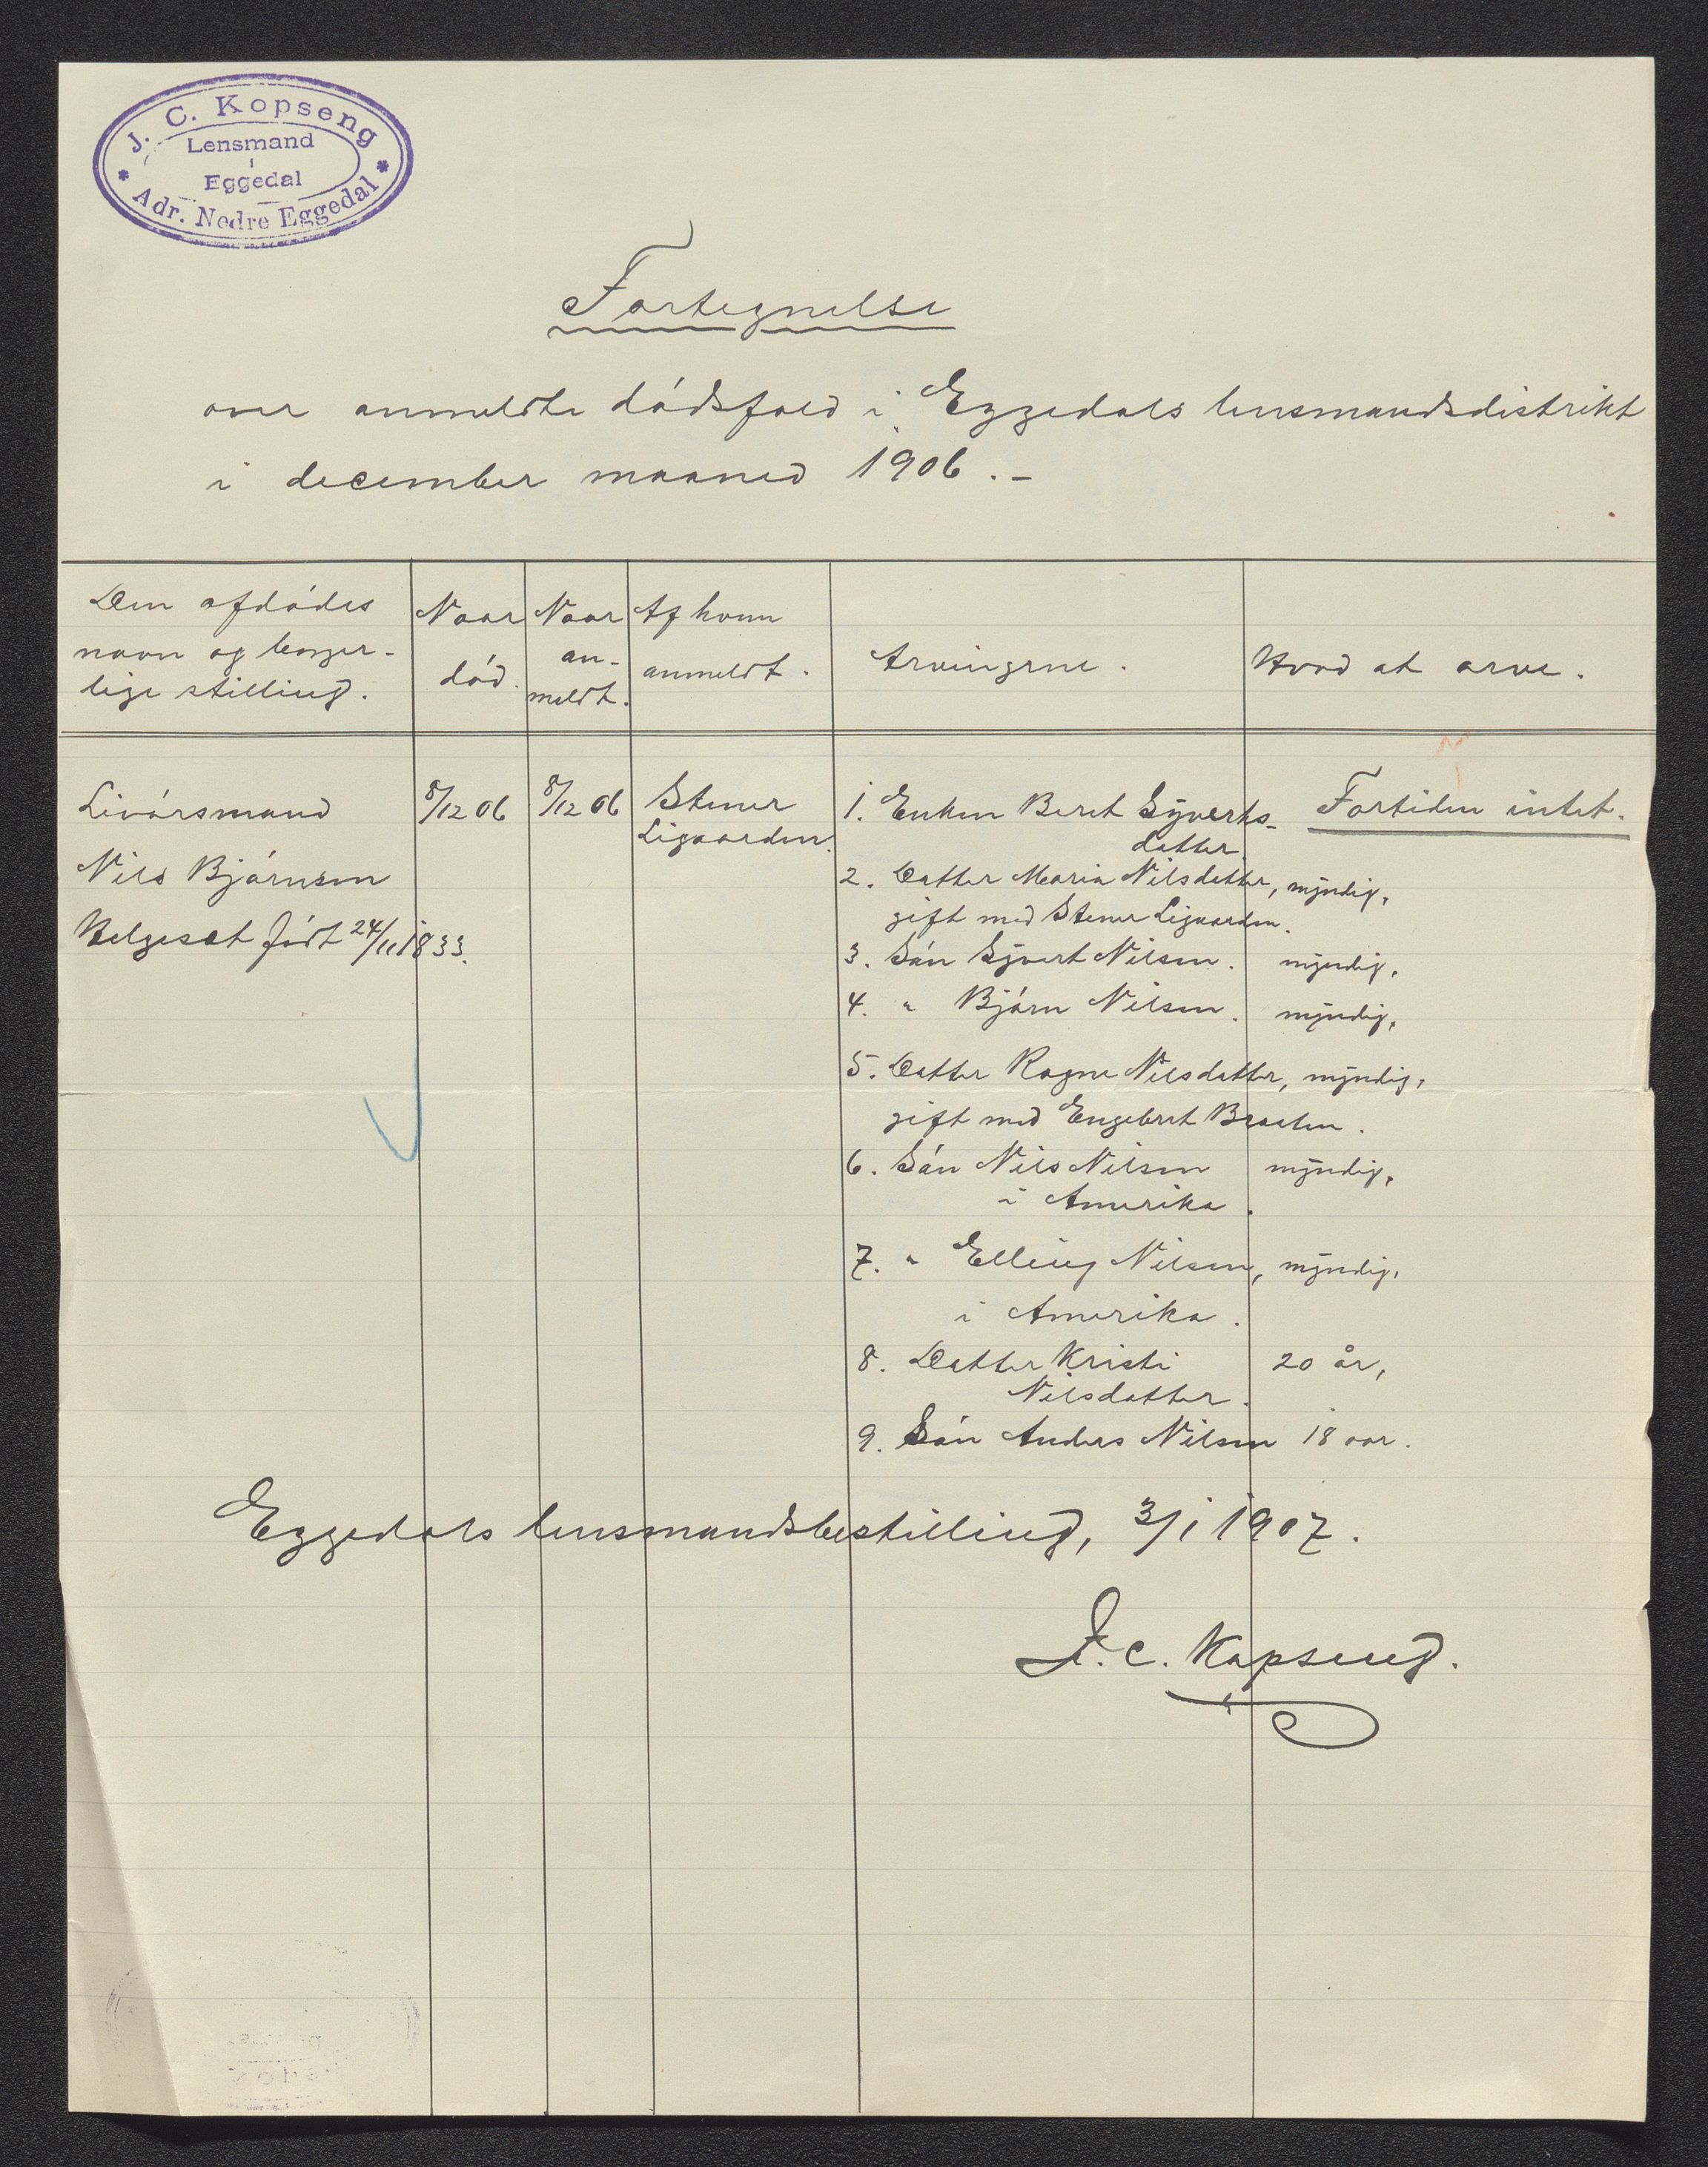 J. C. Kopseng
Lensmand
i
Eggedal
Adr. Nedre Eggedal
Fortegnelse
over anmeldte dødsfald i Eggedals lensmandsdistrikt
i december maaned 1906.-
Den afdødes
navn og borger-
lige stilling.
Naar
død.
Naar
an-
meldt.
Af hvem
anmeldt.
Arvingerne.
Hvad at arve.
Livørsmand
Nils Bjørnsen
Helgeset født 24/11 1833.
8/12 06
8/12 06
Stener
Ligaarden.
1. Enken Beret Syverts-
datter.
Fortiden intet.
2. Datter Maria Nilsdatter, myndig,
gift med Stener Ligaarden.
3. Søn Syvert Nilsen. myndig,
4. " Bjørn Nilsen. myndig,
5. Datter Ragne Nilsdatter, myndig,
gift med Engebret Braaten.
6. Søn Nils Nilsen myndig,
i Amerika.
7. " Elling Nilsen, myndig,
i Amerika.
8. Datter Kristi 20 år,
Nilsdatter.
9. Søn Anders Nilsen 18 aar.
Eggedals lensmandsbestilling, 3/1 1907.
J. C. Kopseng.